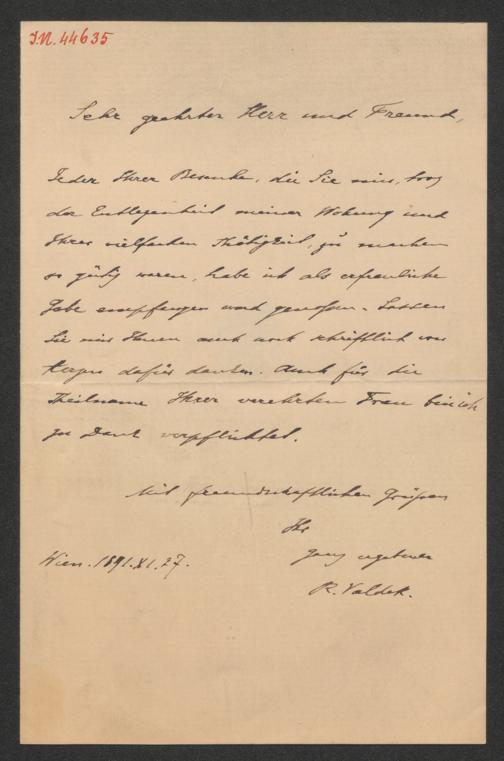 I.N. 44635
Sehr geehrter Herr und Freund,
Jeder Ihrer Besuche, die Sie mir, trotz
der Entlegenheit meiner Wohnung und
Ihrer vielfachen Thätigkeit, zu machen
so gütig waren, habe ich als erfreuliche
Gabe empfangen und genossen. Lassen
Sie mich Ihnen auch noch schriftlich von
Herzen dafür danken. Auch für die
Theilname Ihrer verehrten Frau bin ich
zu Dank verpflichtet.
Mit freundschaftlichen Grüßen
Ihr
ganz ergebener
R. Valdek.
Wien. 1891.XI.27.